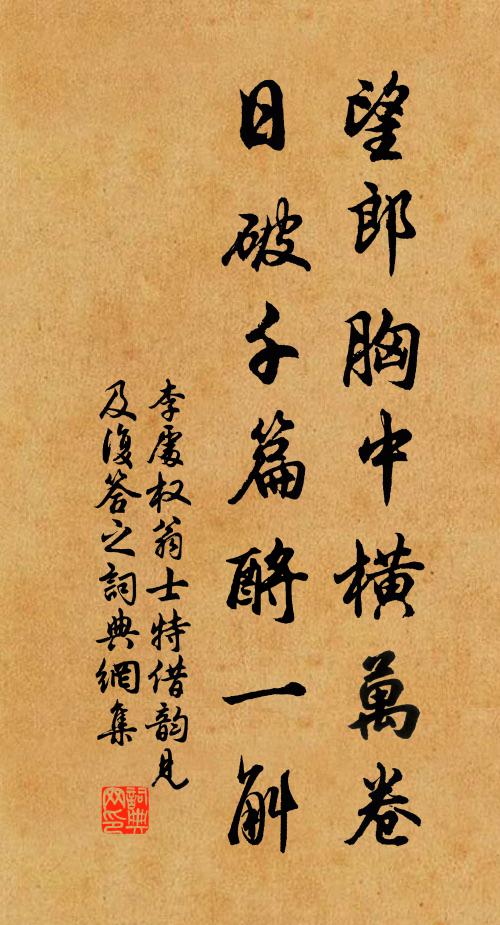 望郎胸中橫萬卷
日破千篇酧一斛
李處权翁士特借韵見
及復答之詞典網集
詞典网印